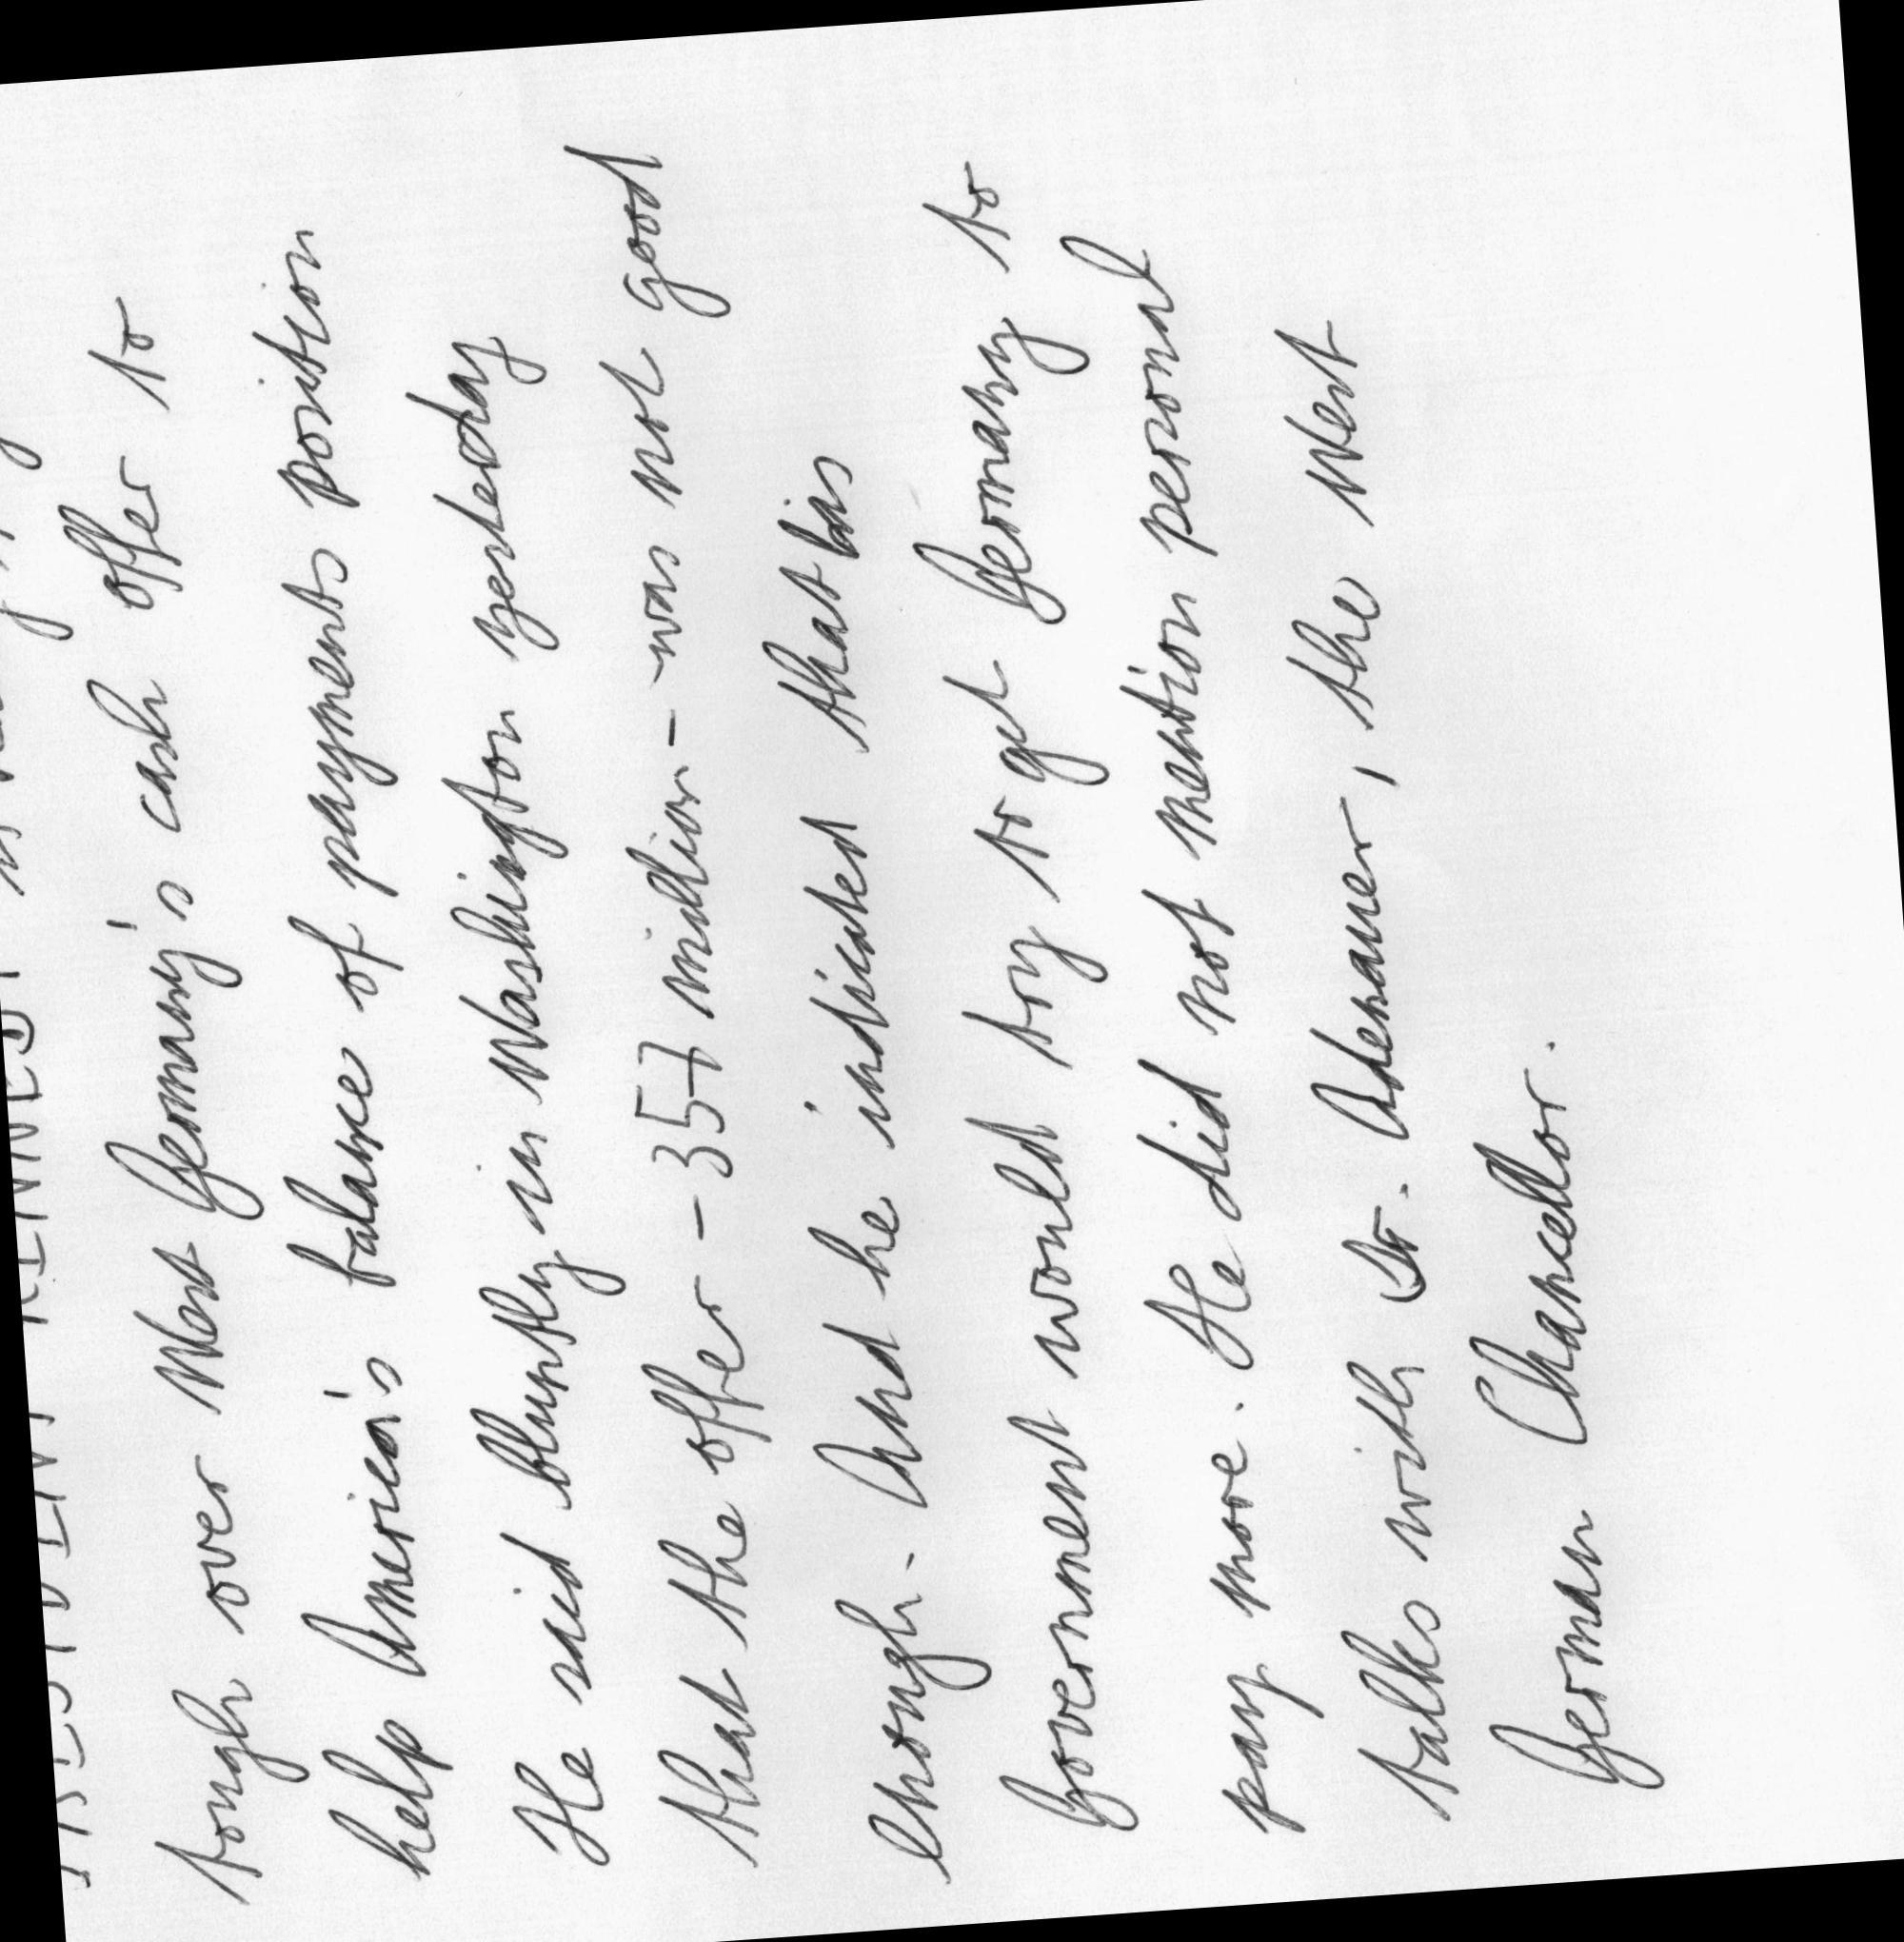 PRESIDENT KENNEDY
tough over West Germany's cash offer to
help America's balance of payments position
He said bluntly in Washington yesterday
that the offer - 357 million - was not good
enough. And he indicated that his
Government would try to get Germany to
pay more. He did not mention personal
talks with Dr. Adenauer, the West
German Chancellor.